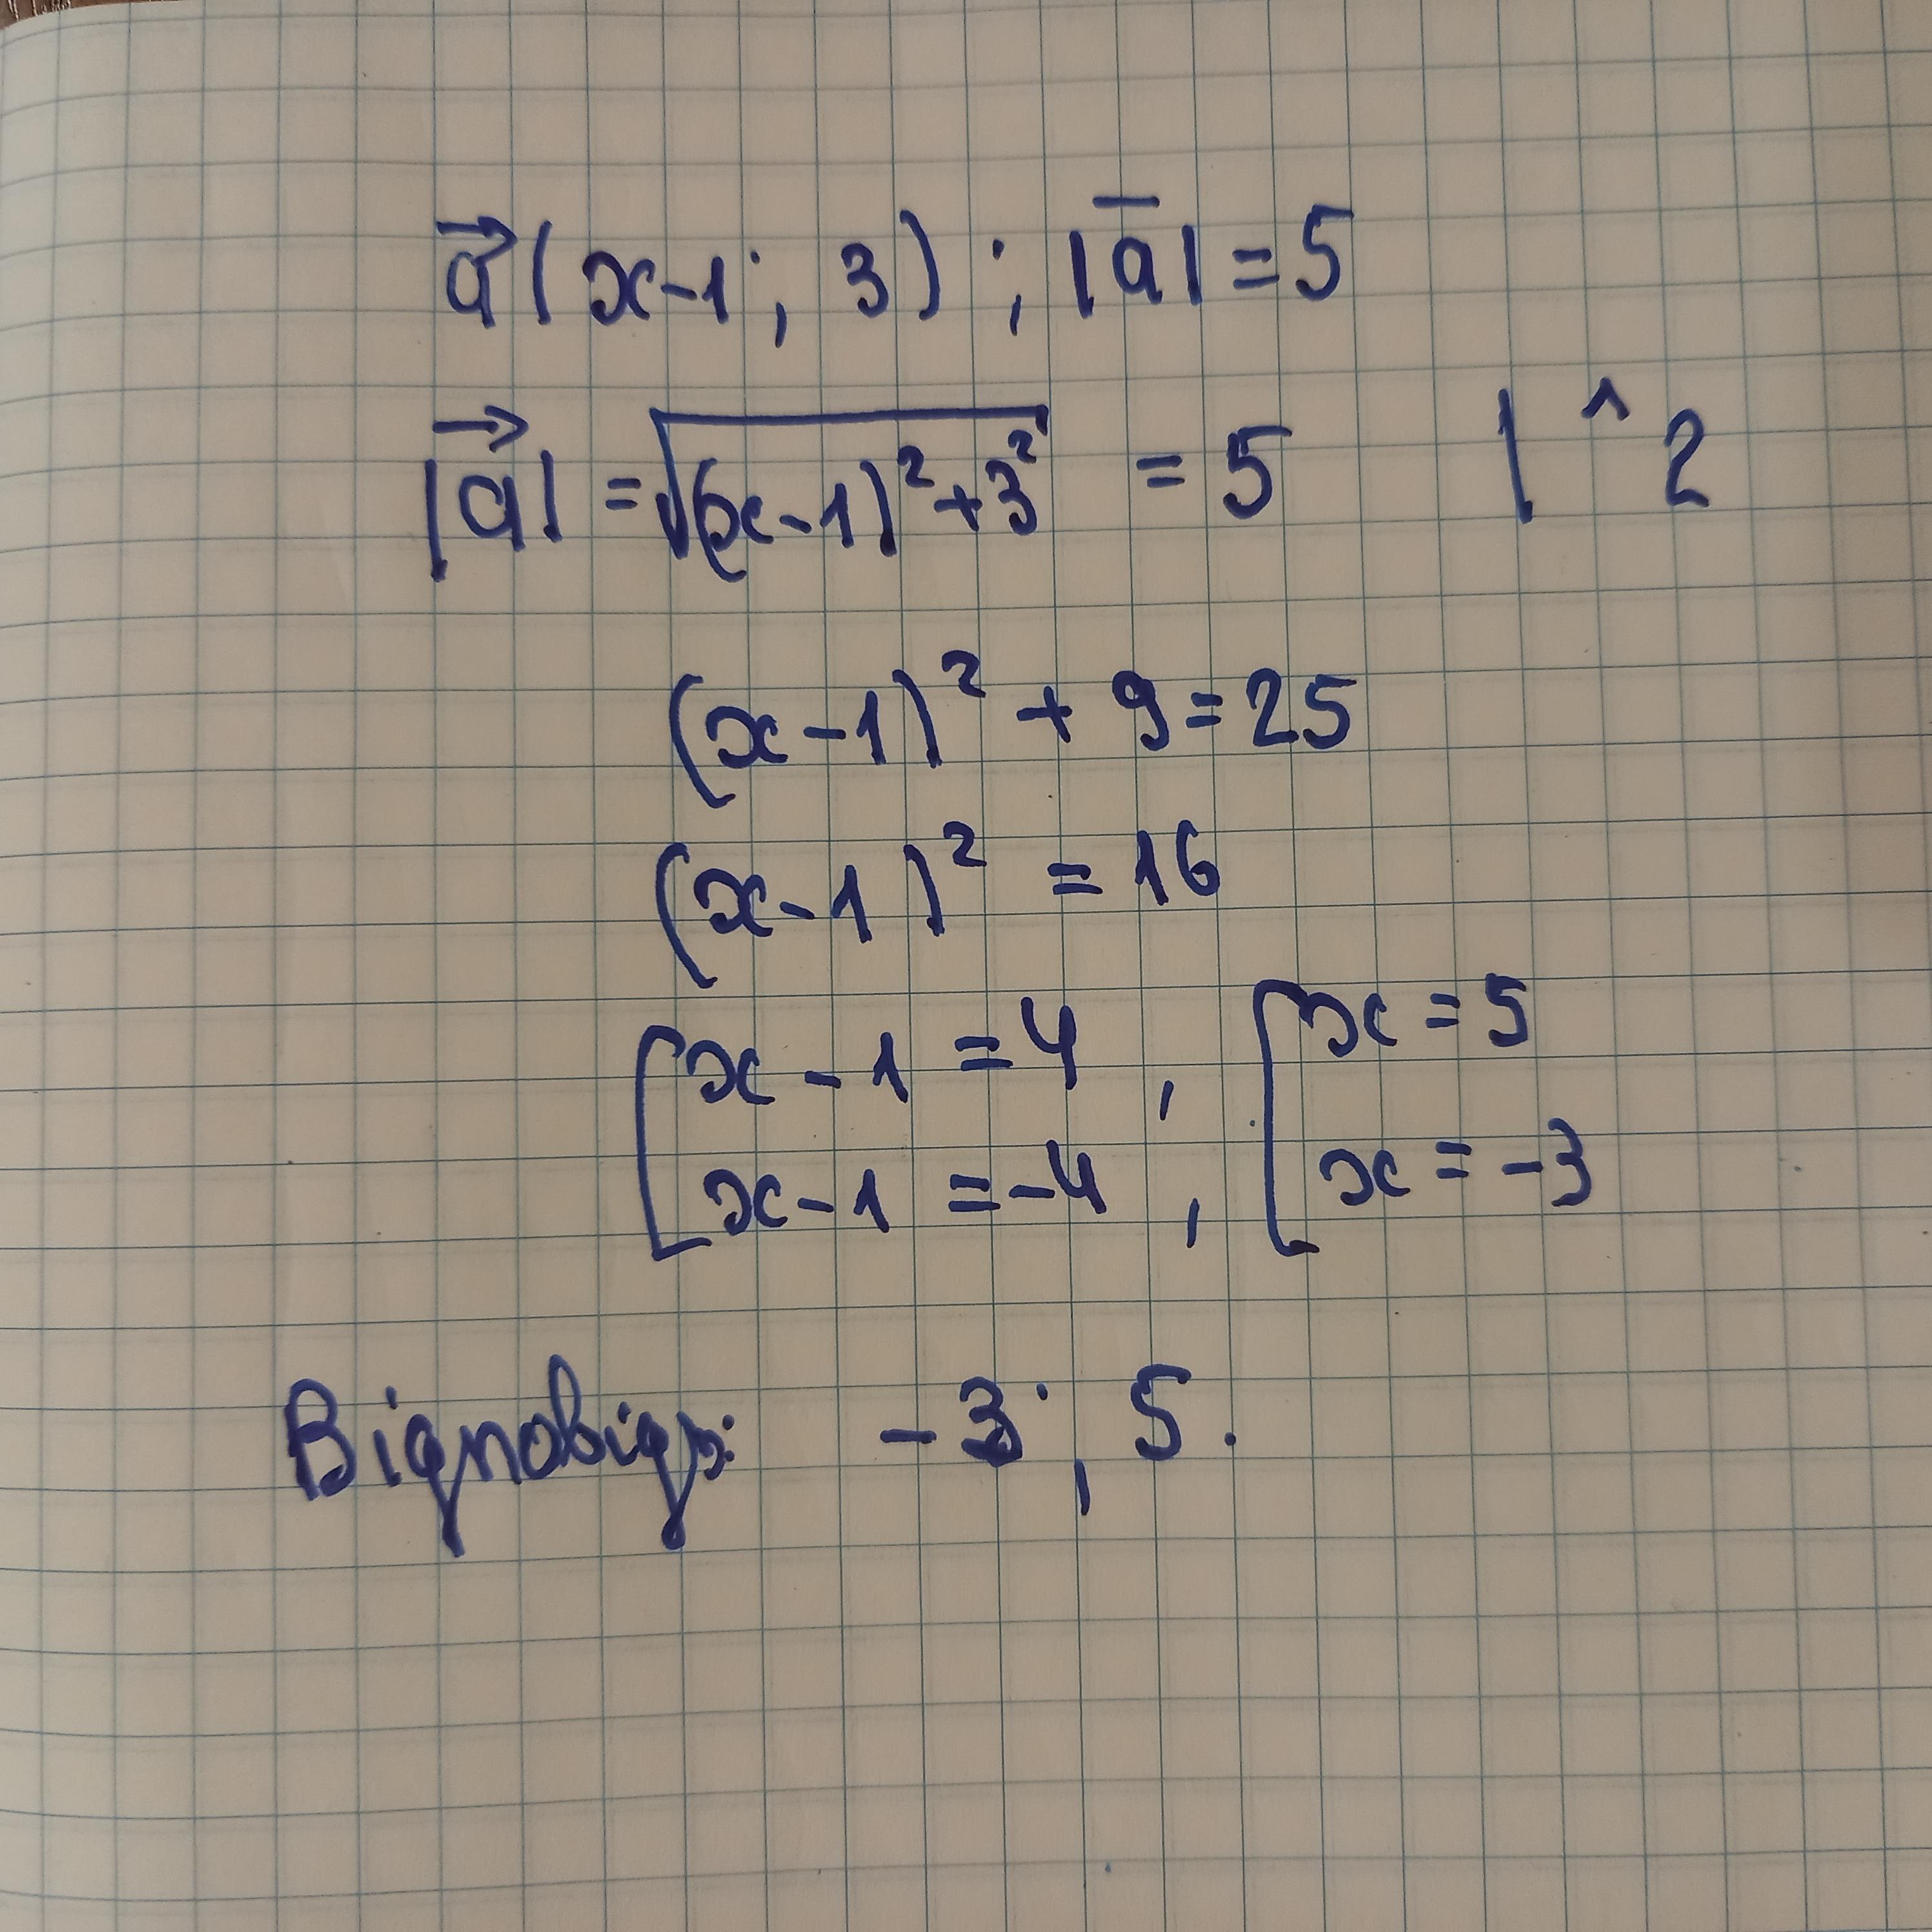 a⃗ (x-1; 3); |a̅| = 5
|a⃗| = √((x-1)² + 3²) = 5 | ^ 2
(x-1)² + 9 = 25
(x-1)² = 16
[ x - 1 = 4, [ x = 5
x - 1 = -4, x = -3
Відповідь: -3; 5.